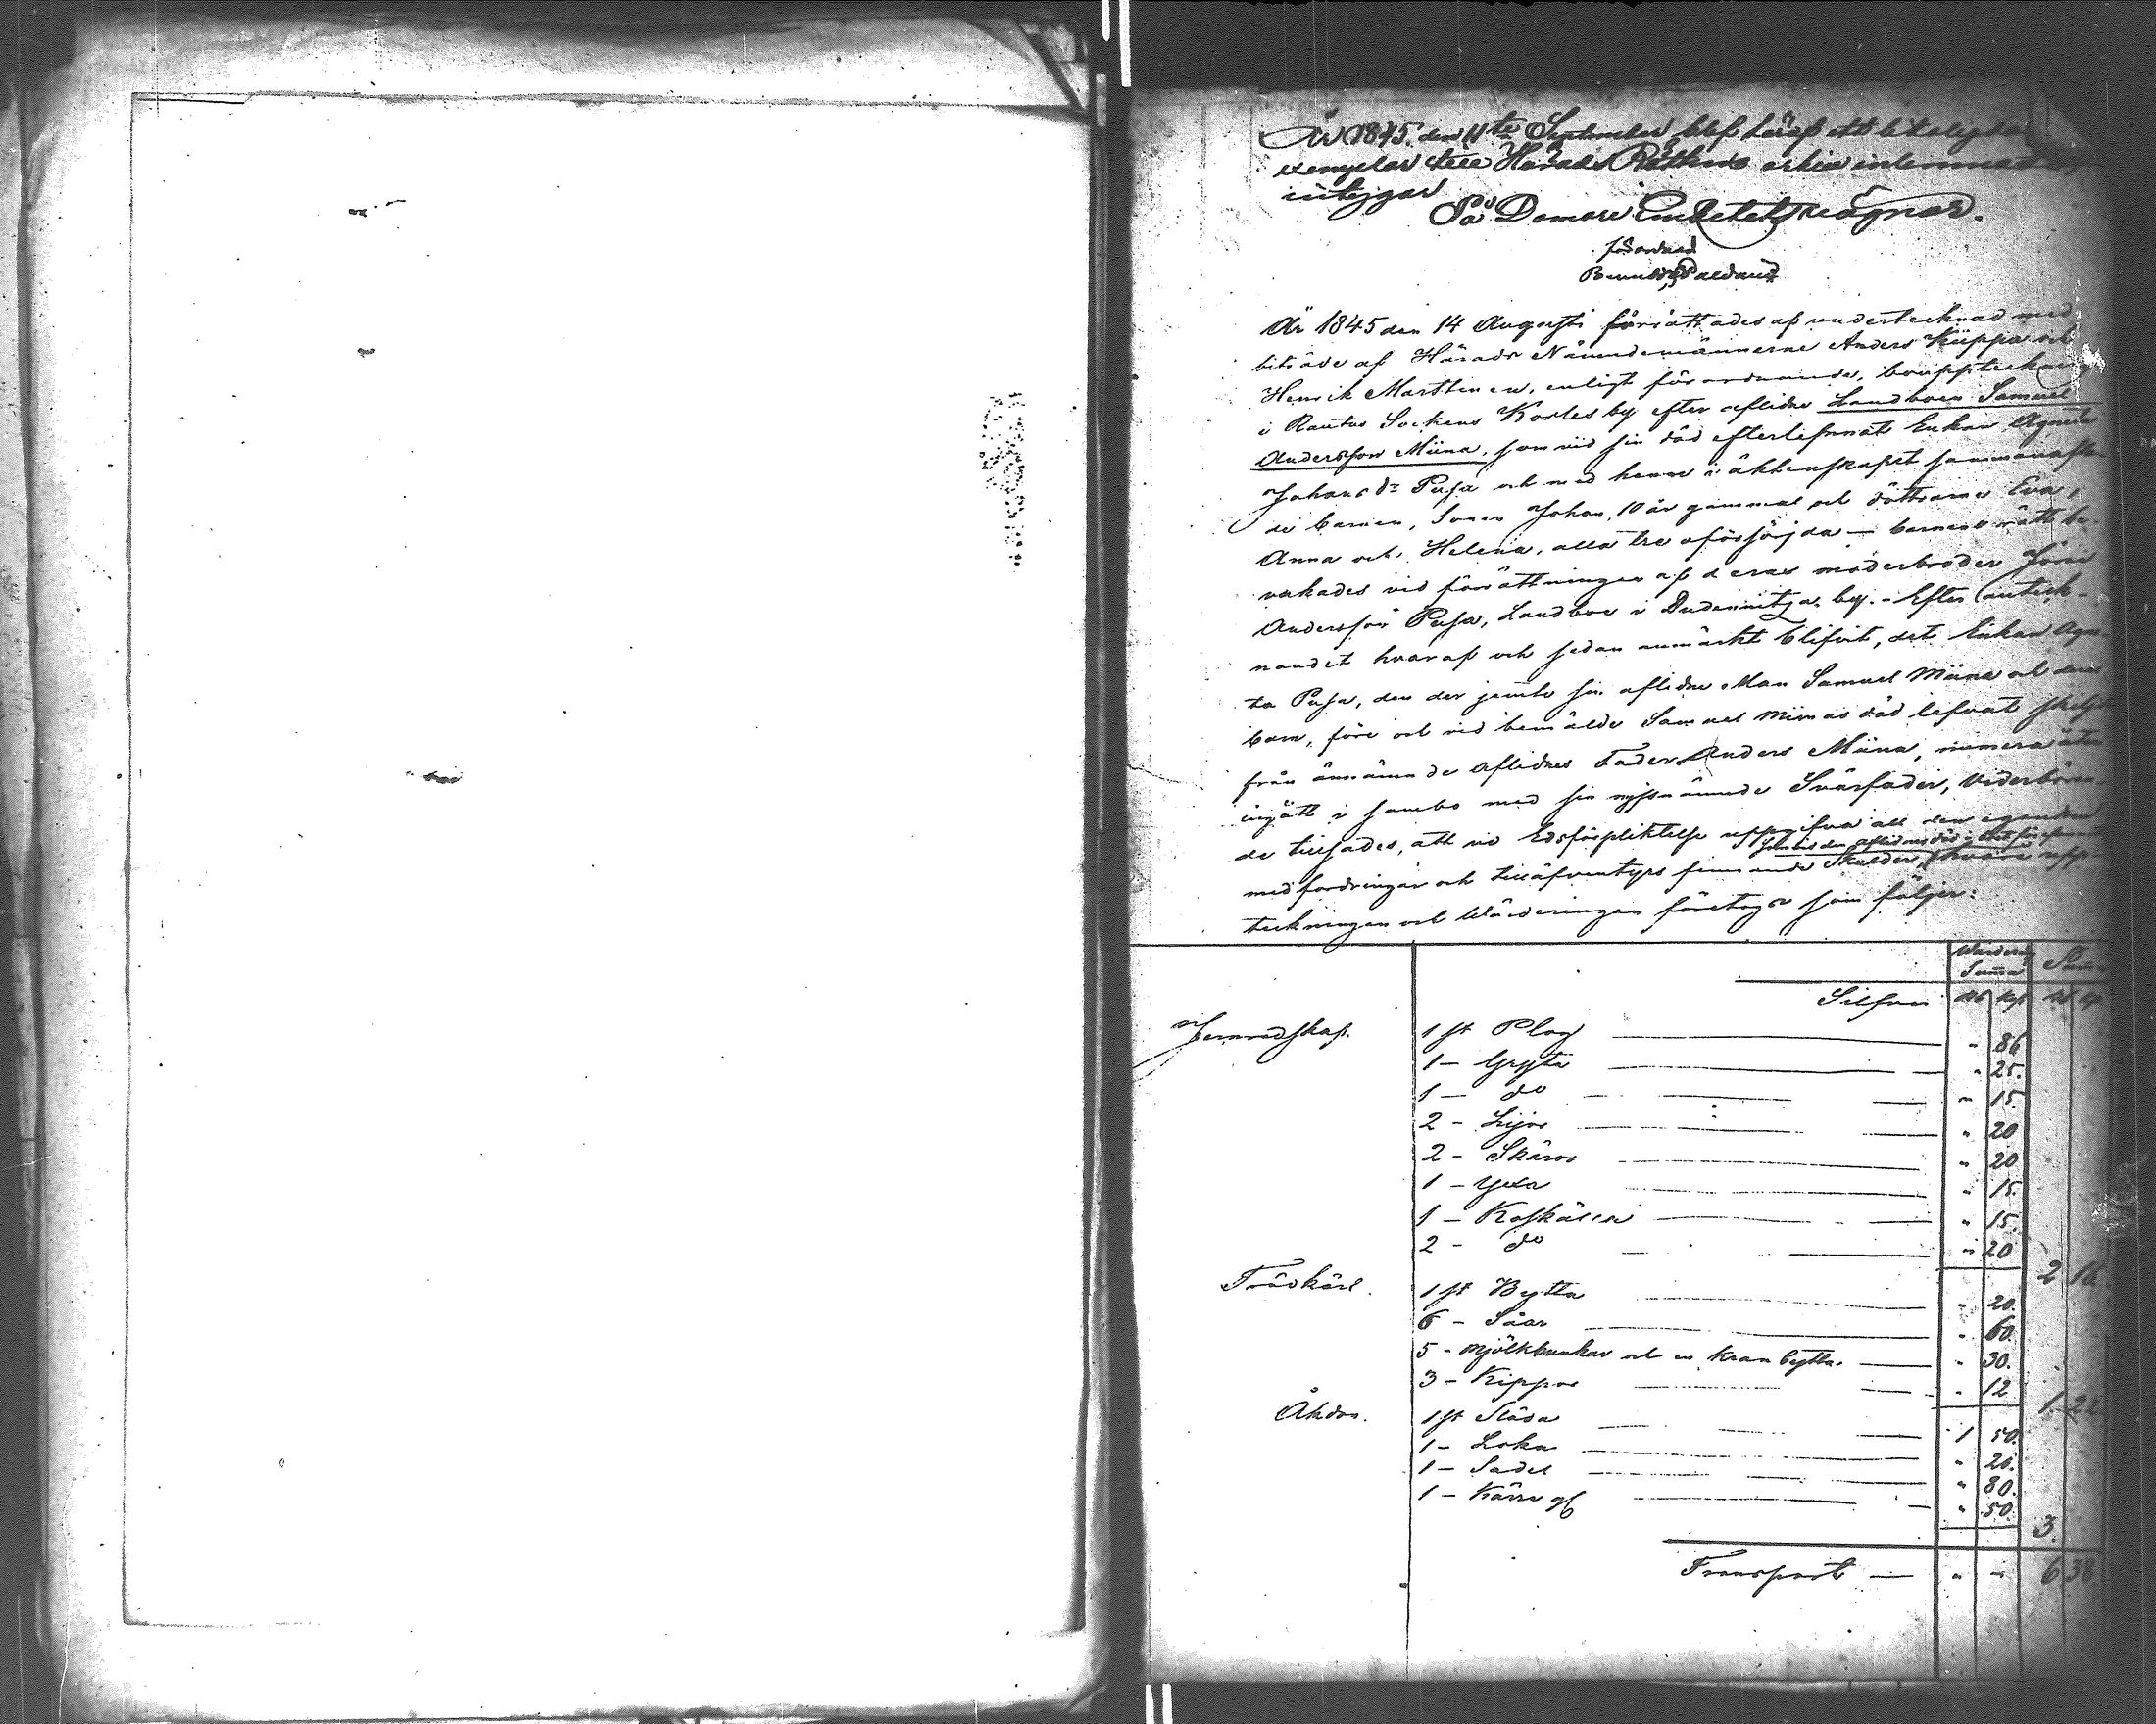 År 1845 den 11te September blef häraf ett likalydande
exemplar till Härads Rättens arkiv inlemnadt,
intygar
På Domare Embetets vägnar.
förordnad
År 1845 den 14 Augusti förrättades af undertecknad med
biträde af Härads Nämndemännerne Anders Küppa och
Henrik Marttinen, enligt förordnande, bouppteckning
i Rautus Sockens Korles by efter aflidne Landboen Samuel
Andersson Miina, som vid sin död efterlefvnat Enkan Agneta
Johansdr Pusa och med henne i äktenskapet sammanafla-
de barnen, Sonen Johan, 10 år gammal och döttrarne Eva,
Anna och Helena, alla tre oförsörjda — barnens rätt be-
vakades vid förrättningen af deras moderbroder Jöran
Andersson Pusa, Landboe i Dudenmitza by. - Efter anteck-
nandet hvaraf och sedan anmärkt blifvit, det Enkan Agne-
ta Pusa, den der jemte sin aflidne Man Samuel Miina och deras
barn, före och vid bemälde Samuel Miinas död lefvat skiljd
från ännämnde aflidnes Fader Anders Miina, numera åter
ingått i sambo med sin nyssnämnde Svärfader, vederböran-
de tillsades, att vid Edsförpliktelse uppgifva all den egendom
som vid den aflidnes död i boet förefunnits
med fordringar och tilläfventyrs finnande Skulder, hvarå upp-
teckningen och Värderingen företogs som följer:
Värderings Summa
Summa
Silfver Rb Kop Rb Kop
Jernredskap. 1 st Plog — " 86
1 — Gryta — " 25.
1 — do — " 15.
2 - Lijor — " 20
2 - Skäror — " 20
1 - Yxa — " 15.
1 - Koskälla — " 15.
2 - do — " 20
2 16
Trädkäril. 1 st Bytta — " 20.
6 - Såar — " 60.
5 - Mjölkbunkar och en Kran bytta. — " 30.
3 - Kippor — " 12
1 22
Åkdon. 1 st Släda — 1 50.
1 - Loka — " 20.
1 - Sadel — " 80.
1 - Kärra — " 50.
3
Transport — " " 6 38